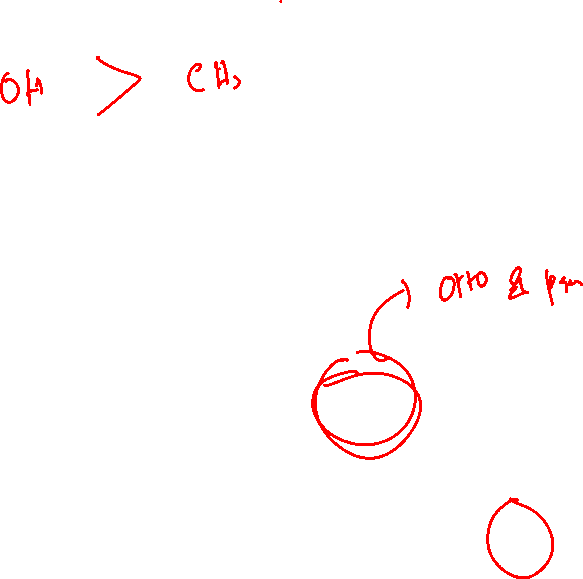 OH > CH3
orto & para